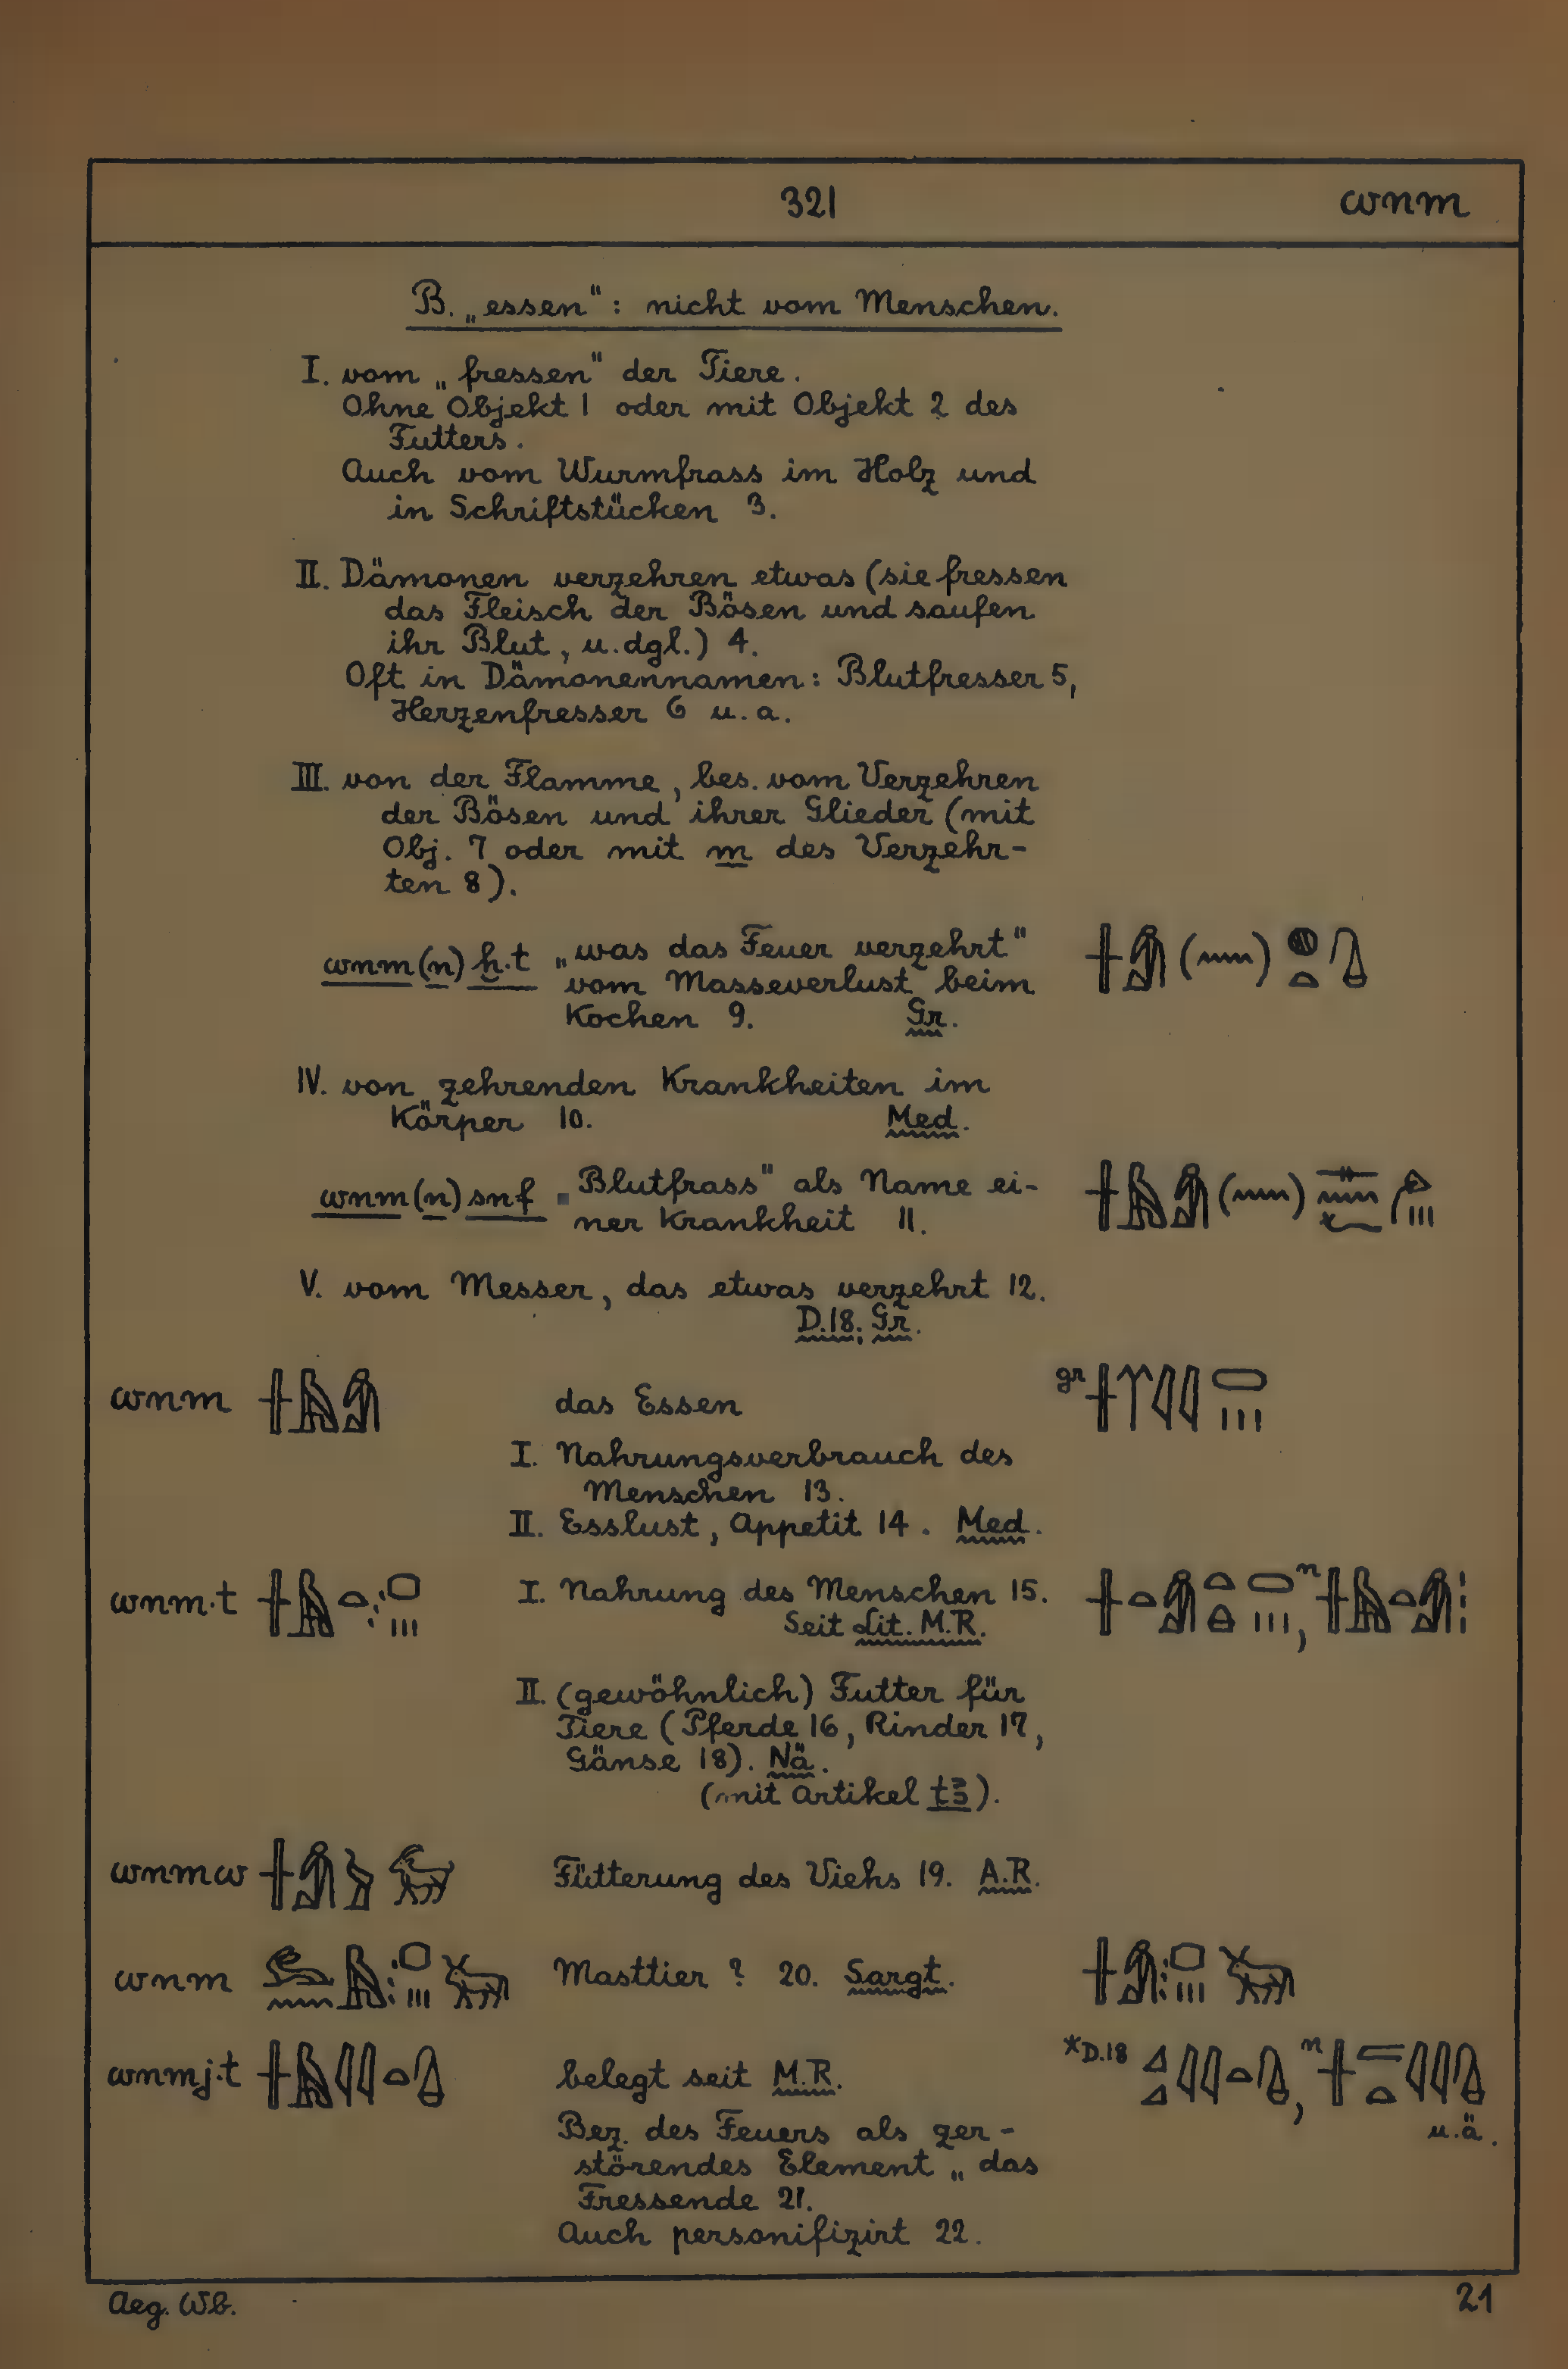 321 wnm
B. „essen“: nicht vom Menschen.
I. vom „fressen“ der Tiere.
Ohne Objekt 1 oder mit Objekt 2 des
Futters.
Auch vom Wurmfrass im Holz und
in Schriftstücken 3.
II. Dämonen verzehren etwas (sie fressen
das Fleisch der Bösen und saufen
ihr Blut, u.dgl.) 4.
Oft in Dämonennamen: Blutfresser 5,
Herzenfresser 6 u.a.
III. von der Flamme, bes. vom Verzehren
der Bösen und ihrer Glieder (mit
Obj. 7 oder mit m des Verzehr-
ten 8).
wnm (n) ḫ.t „was das Feuer verzehrt“
vom Masseverlust beim
Kochen 9. Gr.
IV. von „zehrenden Krankheiten im
Körper 10. Med.
wnm (n) snf „Blutfrass“ als Name ei-
ner Krankheit 11.
V. vom Messer, das etwas verzehrt 12.
D.18; Gr.
wnm das Essen gr
I. Nahrungsverbrauch des
Menschen 13.
II. Esslust, Appetit 14. Med.
wnm.t I. Nahrung des Menschen 15. n
Seit Lit. M.R.
II. (gewöhnlich) Futter für
Tiere (Pferde 16, Rinder 17,
Gänse 18). Nä.
(mit Artikel tꜣ).
wnmw Fütterung des Viehs 19. A.R.
wnm Masttier? 20. Sargt.
wnmj.t belegt seit M.R. *D.18 n
u.ä.
Bez. des Feuers als zer-
störendes Element „das
Fressende 21.
Auch personifizirt 22.
Aeg. Wb. 21